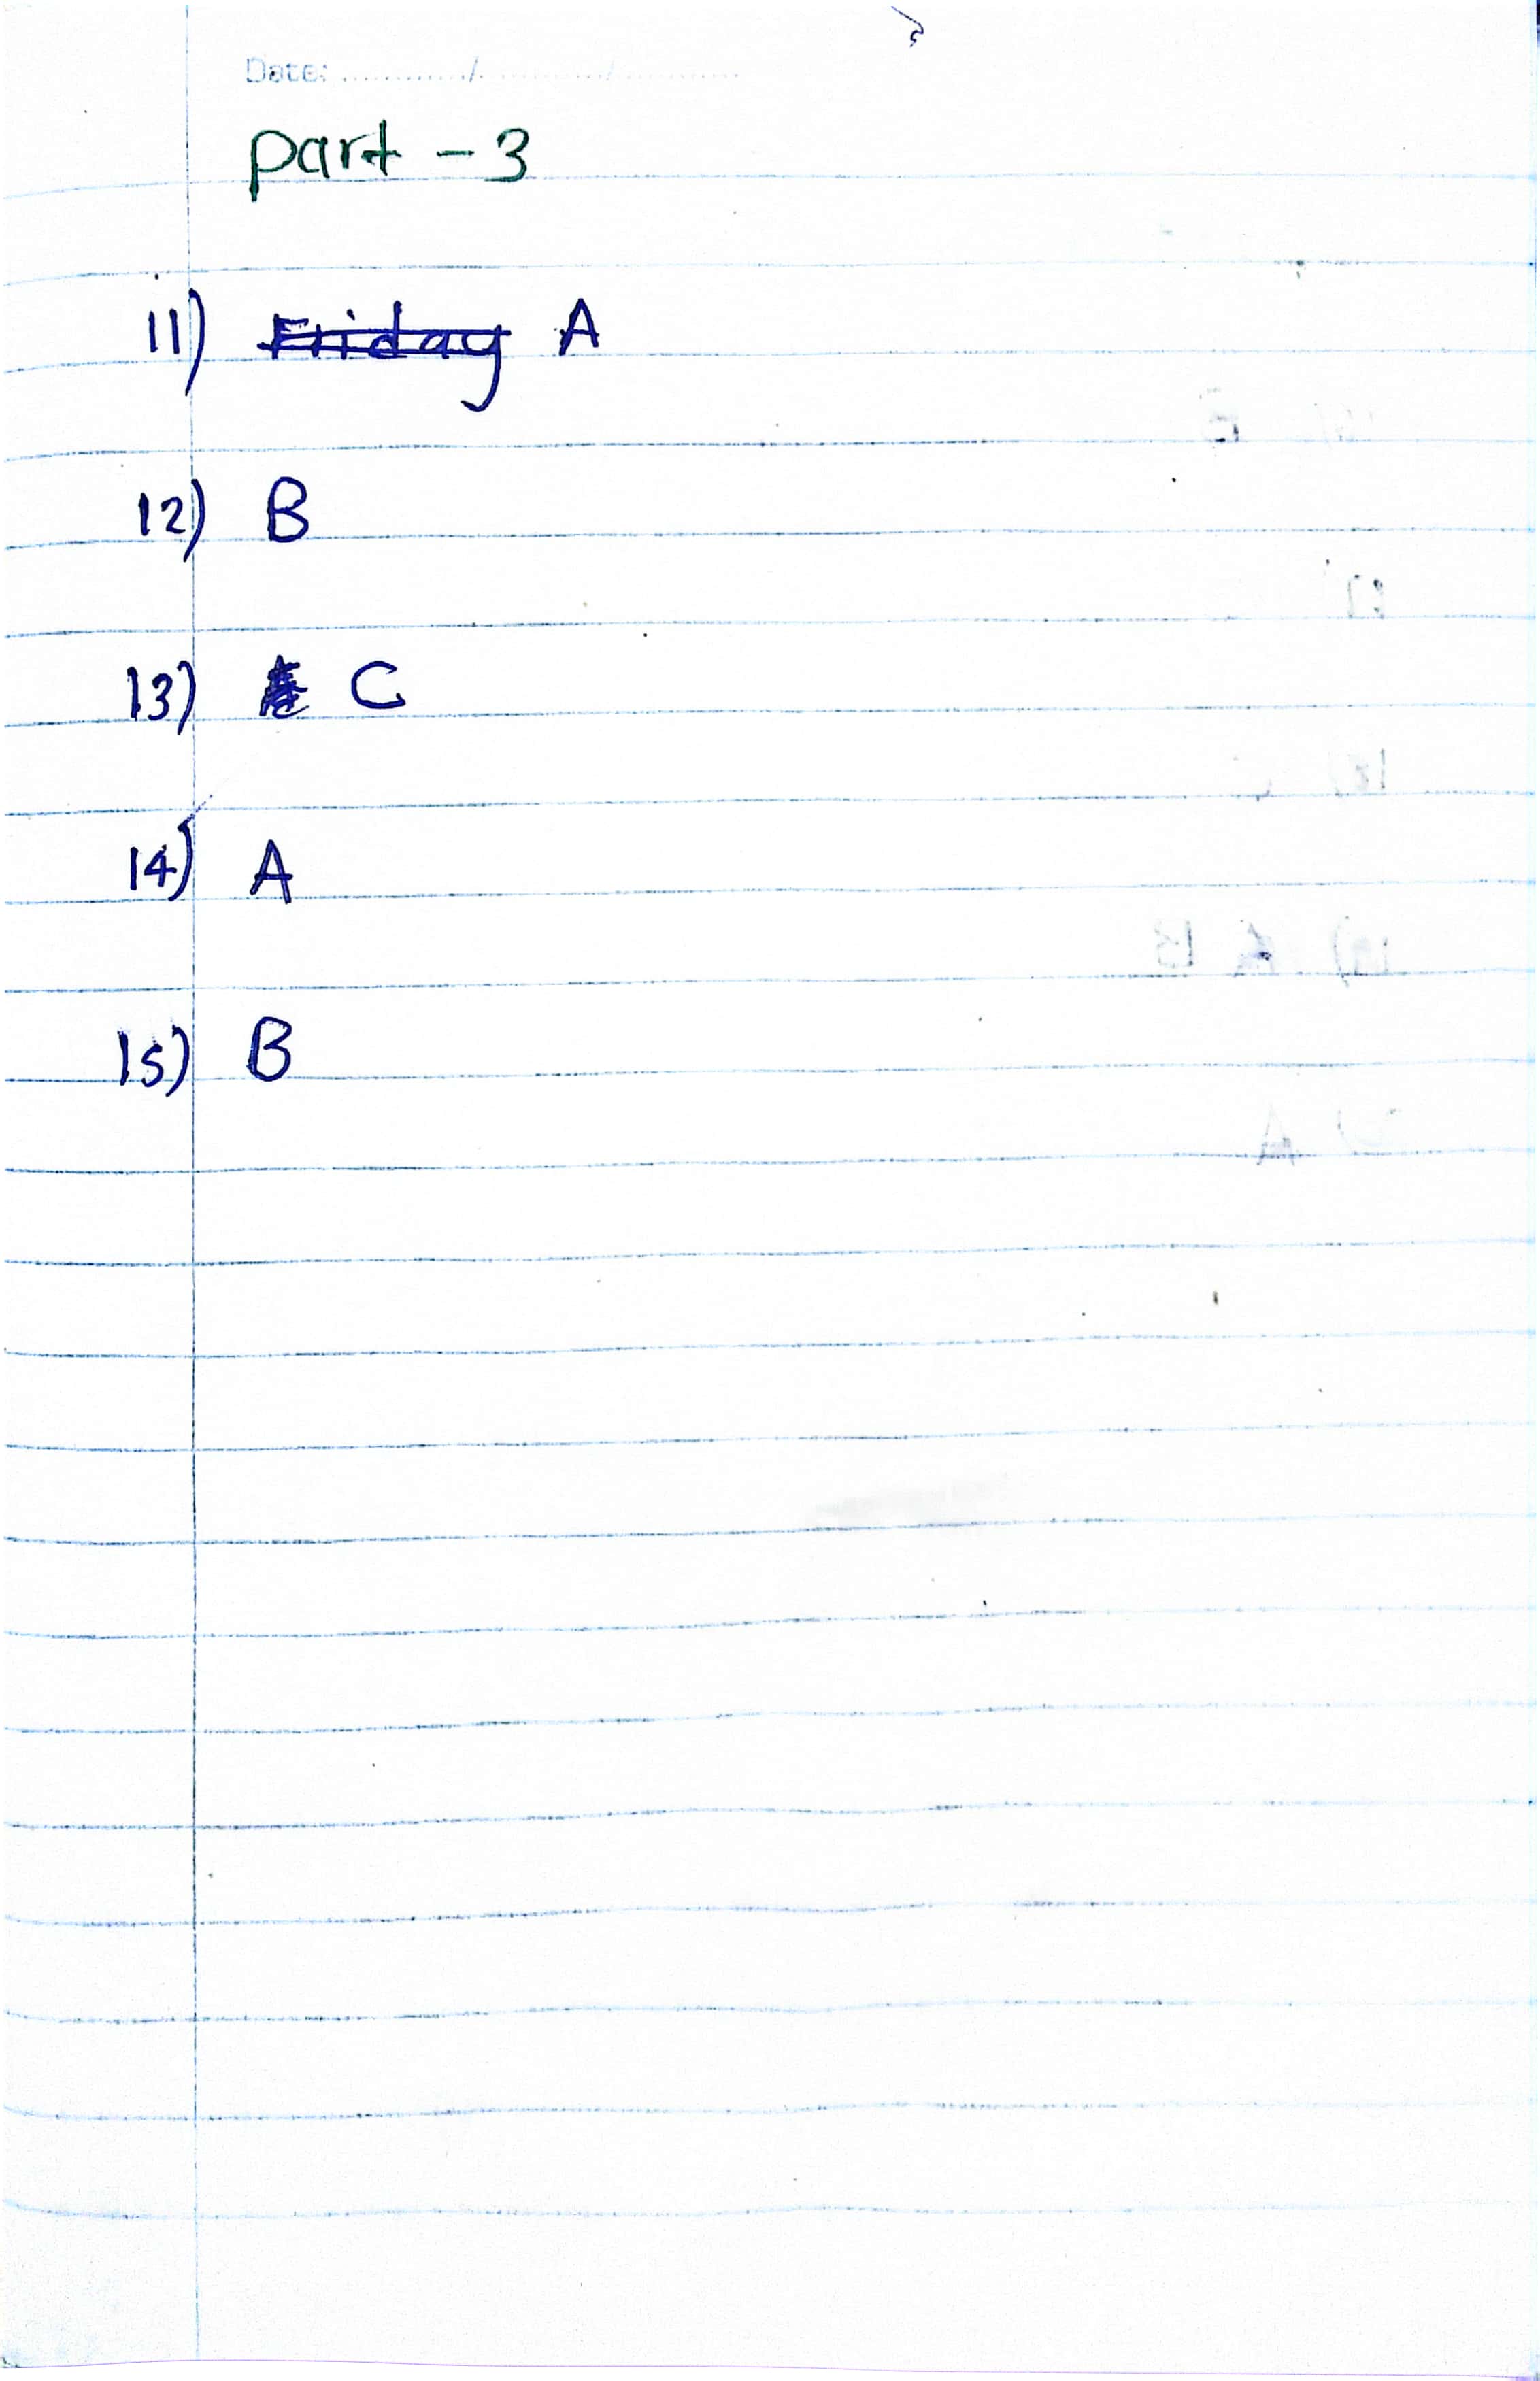 Date: ............/............/............
Part - 3
11) Friday A
12) B
13) C
14) A
15) B